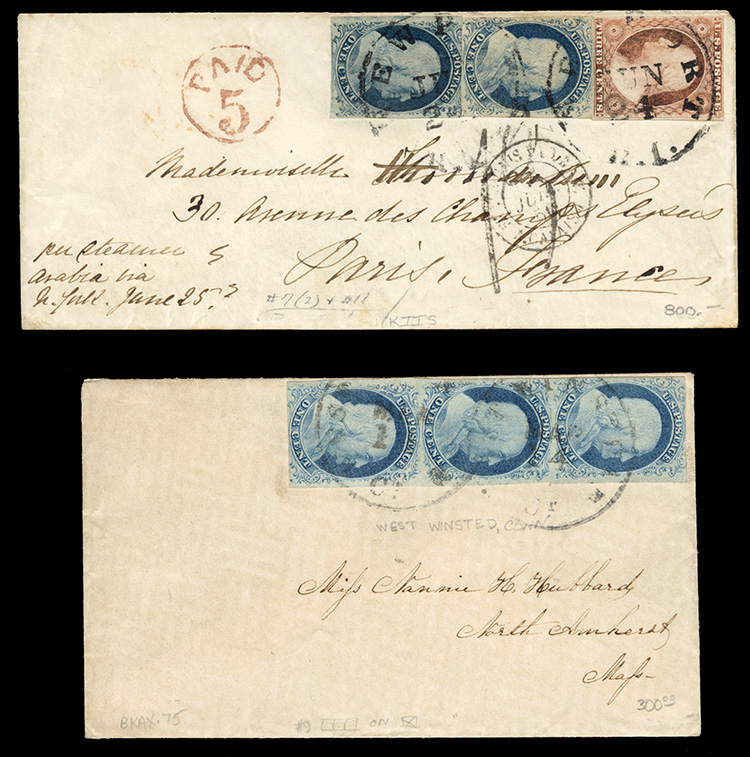 U.S. POSTAGE
ONE CENT.
U.S. POSTAGE
ONE CENT.
U.S. POSTAGE
THREE CENTS.
NEWPORT
JUN
4
R.I.
PAID
5
Mademoiselle
30. Avenue des Champs Elysées
Paris, France
per steamer
Arabia via
N. York. June 25.
#7(2) + #11
KIIS
800.-
U.S. POSTAGE
ONE CENT.
U.S. POSTAGE
ONE CENT.
U.S. POSTAGE
ONE CENT.
WEST WINSTED, CONN
Miss Nannie H. Hubbard,
North Amherst,
Mass-
BKAX.75
#9
ON
300.00